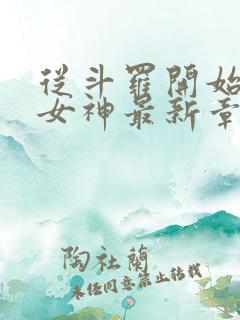 從斗羅開始
女神最新章
陶社蘭
未经同意禁止转载